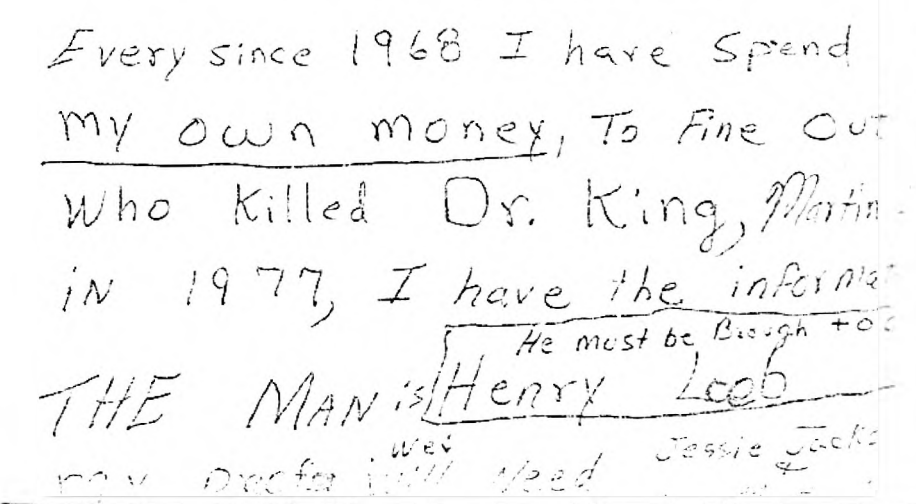 Every since 1968 I have Spend
my own money, To Fine Out
Who Killed Dr. King, Martin
iN 1977, I have the informat
He must be Brough to
THE MAN is Henry Loeb
we
will Need Jessie Jacks